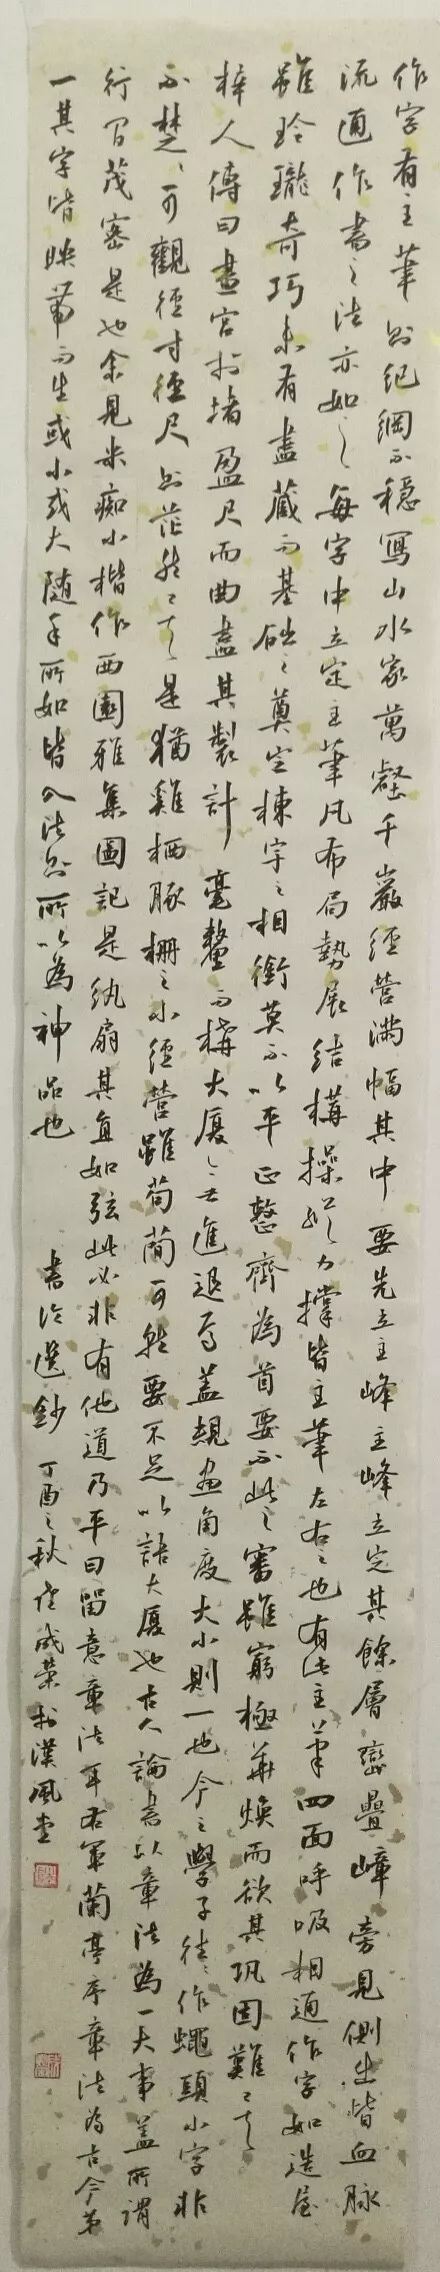 作字有主筆則紀綱不穩寫山水家萬壑千巖經營滿幅其中要先立主峰主峰立定其餘層巒疊嶂旁見側出皆血脈
流通作書之法亦如之每字中立定主筆凡布局勢展結構操縱力撐皆主筆左右之也有此主筆四面呼吸相通作字如造屋
雖玲瓏奇巧未有盡藏而基礎之奠定棟宇之相銜莫不以平正整齊為首要不此之審雖窮極華煥而欲其巩固難之矣
梓人傳曰畫宮於堵盈尺而曲盡其製計毫釐而構大厦之無進退焉蓋規畫角度大小則一也今之學子往往作蠅頭小字非
不楚楚可觀徑寸徑尺則茫然矣是猶雞栖豚柵之小經營雖苟簡可然要不足以語大厦也古人論書以章法為一大事蓋所謂
行間茂密是也余見米癡小楷作西園雅集圖記是紈扇其直如弦此必非有他道乃平日留意章法耳右軍蘭亭序章法為古今第
一其字皆映帶而生或小或大隨手所如皆入法則所以為神品也
書論選鈔 丁酉之秋 成榮於漢風堂